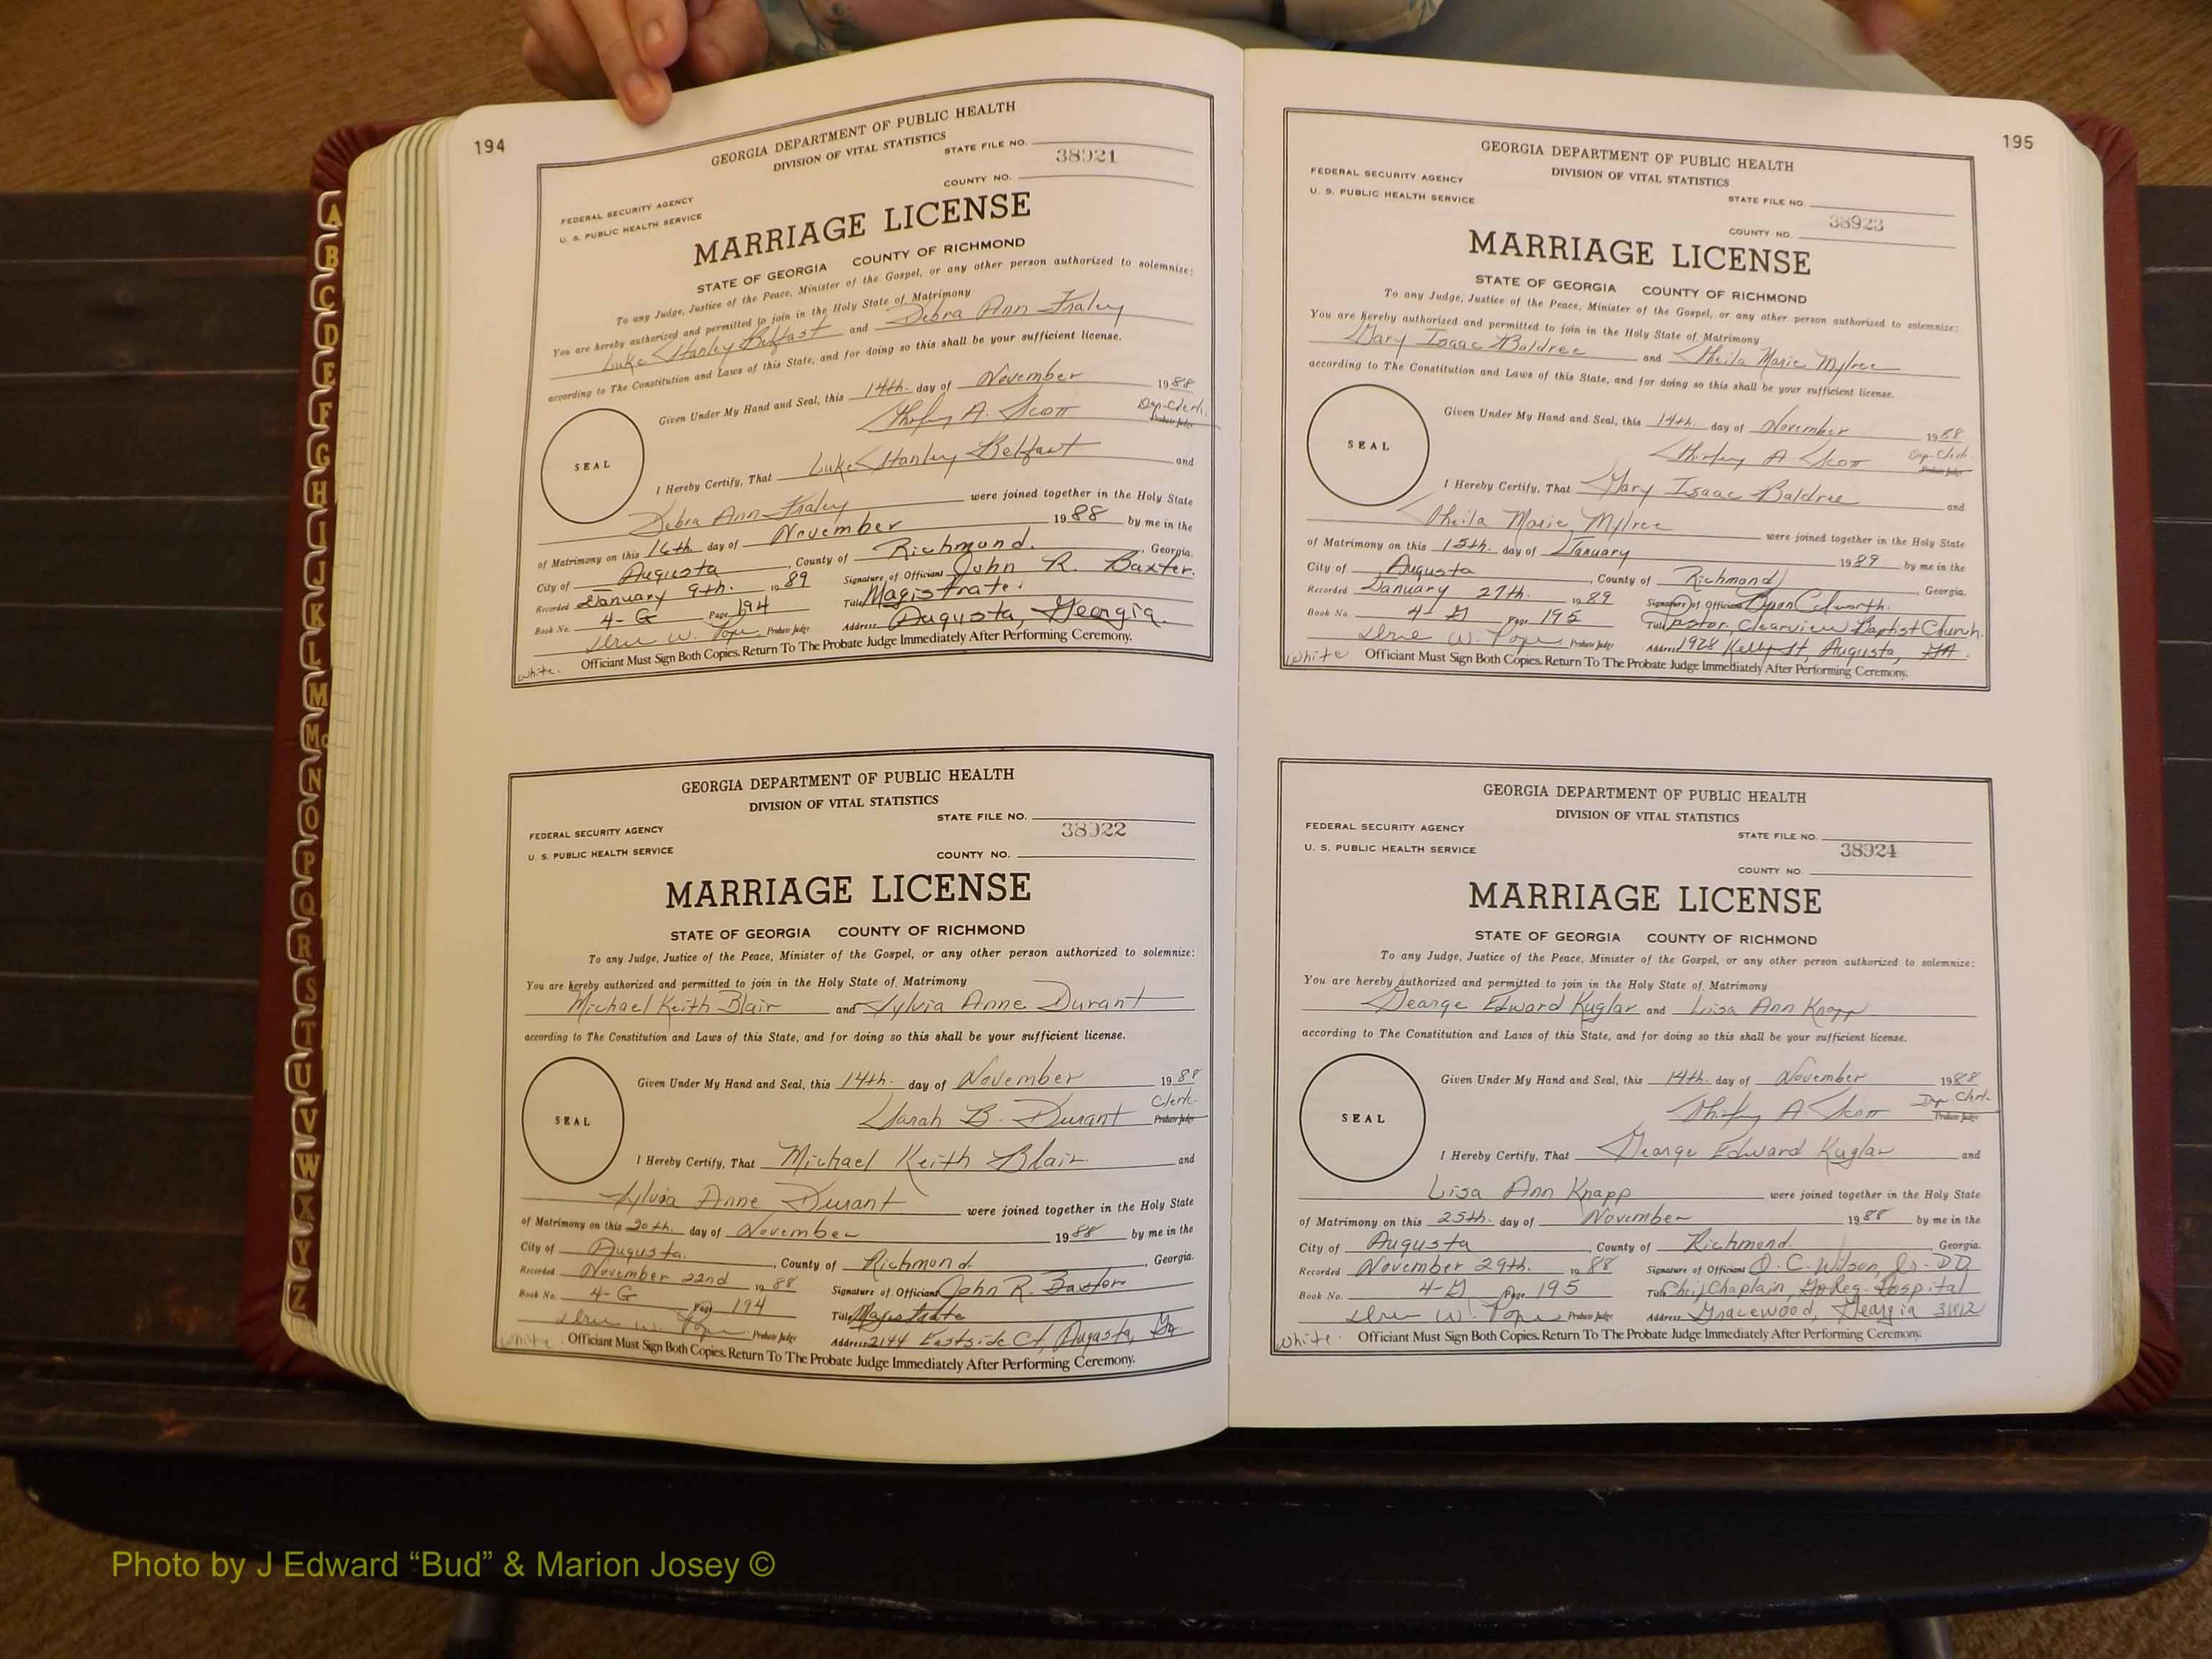 194
GEORGIA DEPARTMENT OF PUBLIC HEALTH
DIVISION OF VITAL STATISTICS
STATE FILE NO.
38921
COUNTY NO.
FEDERAL SECURITY AGENCY
U. S. PUBLIC HEALTH SERVICE
MARRIAGE LICENSE
STATE OF GEORGIA COUNTY OF RICHMOND
To any Judge, Justice of the Peace, Minister of the Gospel, or any other person authorized to solemnize:
You are hereby authorized and permitted to join in the Holy State of Matrimony
Luke Stanley Belfast and Debra Ann Fraley
according to The Constitution and Laws of this State, and for doing so this shall be your sufficient license.
Given Under My Hand and Seal, this 14th. day of November 1988
Shirley A. Scott Dep-Clerk. Probate Judge
SEAL
I Hereby Certify, That Luke Stanley Belfast and
Debra Ann Fraley were joined together in the Holy State
of Matrimony on this 16th. day of November 1988 by me in the
City of Augusta, County of Richmond. Georgia.
Recorded January 9th. 1989 Signature of Officiant John R. Baxter.
Book No. 4-G Page 194 Title Magistrate.
W. Pope Probate Judge Address Augusta, Georgia.
White. Officiant Must Sign Both Copies. Return To The Probate Judge Immediately After Performing Ceremony.
GEORGIA DEPARTMENT OF PUBLIC HEALTH
DIVISION OF VITAL STATISTICS
STATE FILE NO.
38922
FEDERAL SECURITY AGENCY
U. S. PUBLIC HEALTH SERVICE
COUNTY NO.
MARRIAGE LICENSE
STATE OF GEORGIA COUNTY OF RICHMOND
To any Judge, Justice of the Peace, Minister of the Gospel, or any other person authorized to solemnize:
You are hereby authorized and permitted to join in the Holy State of Matrimony
Michael Keith Blair and Sylvia Anne Durant
according to The Constitution and Laws of this State, and for doing so this shall be your sufficient license.
Given Under My Hand and Seal, this 14th. day of November 1988
Sarah B. Durant Clerk. Probate Judge
SEAL
I Hereby Certify, That Michael Keith Blair. and
Sylvia Anne Durant were joined together in the Holy State
of Matrimony on this 20th. day of November 1988 by me in the
City of Augusta. County of Richmond. Georgia.
Recorded November 22nd 1988 Signature of Officiant John R. Baxter
Book No. 4-G Page 194 Title Magistrate
W. Pope Probate Judge Address 2144 Eastside Ct, Augusta, Ga.
White. Officiant Must Sign Both Copies. Return To The Probate Judge Immediately After Performing Ceremony.
195
GEORGIA DEPARTMENT OF PUBLIC HEALTH
DIVISION OF VITAL STATISTICS
FEDERAL SECURITY AGENCY
U. S. PUBLIC HEALTH SERVICE
STATE FILE NO.
38923
COUNTY NO.
MARRIAGE LICENSE
STATE OF GEORGIA COUNTY OF RICHMOND
To any Judge, Justice of the Peace, Minister of the Gospel, or any other person authorized to solemnize:
You are hereby authorized and permitted to join in the Holy State of Matrimony
Gary Isaac Baldree and Sheila Marie Mylree
according to The Constitution and Laws of this State, and for doing so this shall be your sufficient license.
Given Under My Hand and Seal, this 14th. day of November 1988
Shirley A. Scott Dep-Clerk. Probate Judge
SEAL
I Hereby Certify, That Gary Isaac Baldree and
Sheila Marie Mylree were joined together in the Holy State
of Matrimony on this 15th. day of January 1989 by me in the
City of Augusta, County of Richmond Georgia.
Recorded January 27th. 1989 Signature of Officiant
Book No. 4-G Page 195 Title Pastor, Clearview Baptist Church.
W. Pope Probate Judge Address 1928 Kelly St, Augusta, GA.
White Officiant Must Sign Both Copies. Return To The Probate Judge Immediately After Performing Ceremony.
GEORGIA DEPARTMENT OF PUBLIC HEALTH
DIVISION OF VITAL STATISTICS
FEDERAL SECURITY AGENCY
STATE FILE NO.
U. S. PUBLIC HEALTH SERVICE
38924
COUNTY NO.
MARRIAGE LICENSE
STATE OF GEORGIA COUNTY OF RICHMOND
To any Judge, Justice of the Peace, Minister of the Gospel, or any other person authorized to solemnize:
You are hereby authorized and permitted to join in the Holy State of Matrimony
George Edward Kuglar and Lisa Ann Knapp
according to The Constitution and Laws of this State, and for doing so this shall be your sufficient license.
Given Under My Hand and Seal, this 14th. day of November 1988
Shirley A Scott Dep. Clerk. Probate Judge
SEAL
I Hereby Certify, That George Edward Kuglar and
Lisa Ann Knapp were joined together in the Holy State
of Matrimony on this 25th. day of November 1988 by me in the
City of Augusta, County of Richmond Georgia.
Recorded November 29th. 1988 Signature of Officiant O. C. Wilson, Jr. DD
Book No. 4-G Page 195 Title Chief Chaplain, Ga Reg. Hospital
W. Pope Probate Judge Address Gracewood, Georgia
White. Officiant Must Sign Both Copies. Return To The Probate Judge Immediately After Performing Ceremony.
A
B
C
D
E
F
G
H
I
J
K
L
M
Mc
N
O
P
Q
R
S
T
U
V
W
X
Y
Z
Photo by J Edward “Bud” & Marion Josey ©